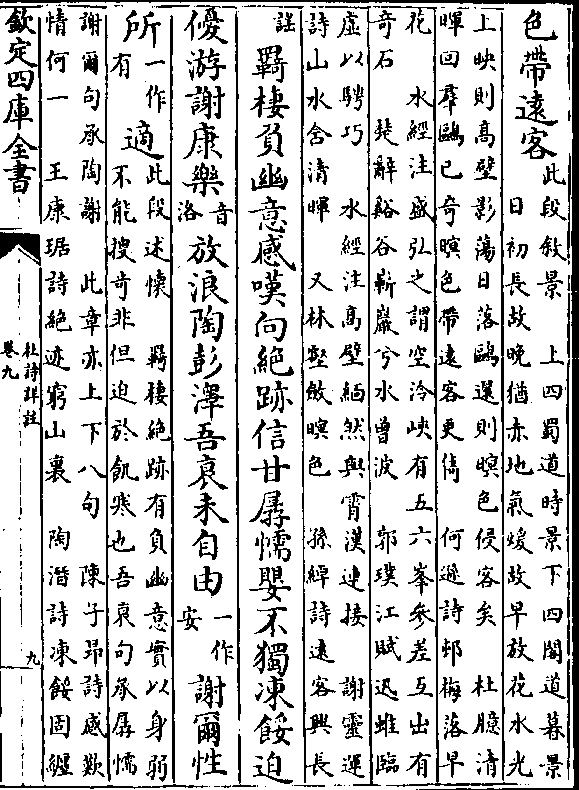 色帶遠客此段叙景　上四蜀道時景下四閣道暮景
日初長故晚猶赤地氣煖故早放花水光
上映則髙壁影蕩日落鷗還則暝色侵客矣　杜臆清
暉回羣鷗已竒暝色帶遠客更儁　何遜詩邨梅落早
花　水經注盛弘之謂空泠峽有五六峯參差互出有
竒石　楚辭谿谷嶄巖兮水曾波　郭璞江賦迅蜼臨
虚以騁巧　水經注髙壁緬然與霄漢連接　謝靈運
詩山水含清暉　又林壑斂暝色　孫綽詩遠客興長
謡
羇棲負幽意感嘆向絶跡信甘孱懦嬰不獨凍餒迫
優游謝康樂音洛放浪陶彭澤吾衰未自由一作安謝爾性
所一作有適此段述懷　羇棲絶跡有負幽意實以身弱
不能搜竒非但迫於飢寒也吾衰句承孱懦
謝爾句承陶謝　此章亦上下八句　陳子昂詩感歎
情何一　王康琚詩絶迹窮山裏　陶潛詩凍餒固纏
欽定四庫全書
杜詩詳註
卷九
九